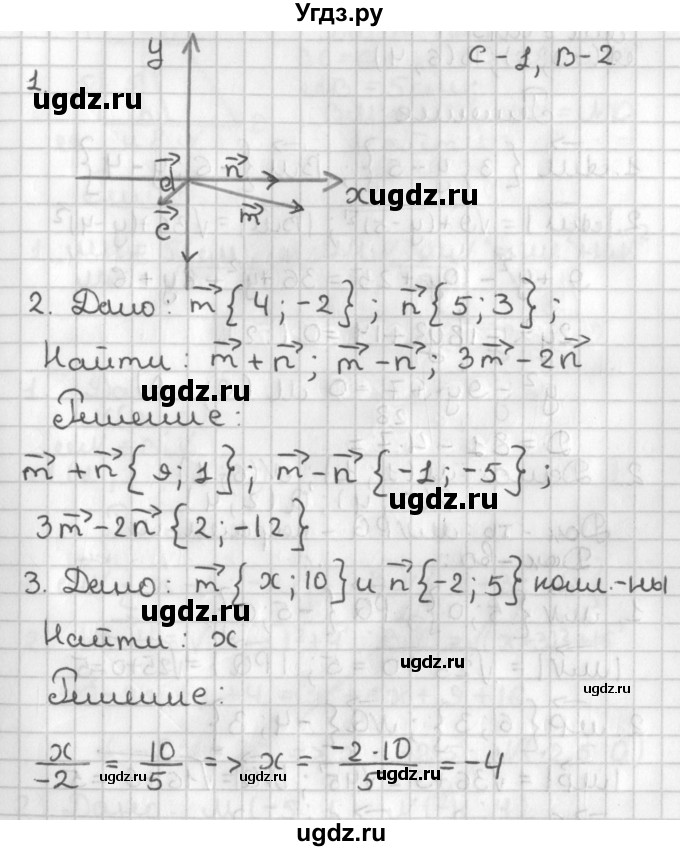 Угдз.ру
С-1, В-2
1.
ugdz.ru
y
d⃗ n⃗
x ugdz.ru
c⃗ m⃗
2. Дано: m⃗{4;-2}; n⃗{5;3};
Найти: m⃗+n⃗; m⃗-n⃗; 3m⃗-2n⃗
ugdz.ru
Решение:
m⃗+n⃗{9;1}; m⃗-n⃗{-1;-5};
ugdz.ru
3m⃗-2n⃗{2;-12}
3. Дано: m⃗{x;10} и n⃗{-2;5} колл.-ны
ugdz.ru
Найти: x
ugdz.ru
ugdz.ru
Решение:
x/-2 = 10/5 => x = -2·10/5 = -4
ugdz.ru ugdz.ru ugdz.ru ugdz.ru
ugdz.ru